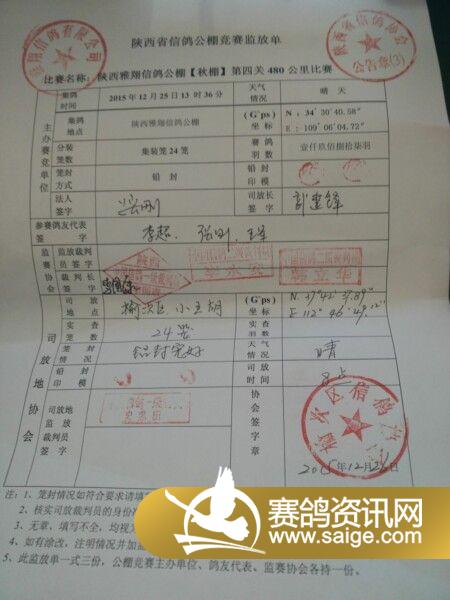 陕西省信鸽公棚竞赛监放单
陕西省信鸽协会
公告章(3)
比赛名称：陕西雅翔信鸽公棚【秋棚】第四关 480 公里比赛
主办竞赛单位
集鸽时间 2015 年 12 月 25 日 13 时 36 分 天气情况 晴天
集鸽地点 陕西雅翔信鸽公棚 (G ps) 坐标 N：34° 30′ 40.58″
E：109° 06′ 04.72″
分装笼数 集装笼 24 笼 赛鸽羽数 壹仟玖佰捌拾柒羽
笼封方式 铅封 铅封印模
法人签字 司放长签字
参赛鸽友代表签字 李超、张刚、
监赛协会 监放裁判员签字
裁判长签字
司放地协会
司放地点 榆次区小五胡 (G ps) 坐标 N. 37° 42′
E 112° 46′ 49.12″
实查笼数 24笼 实查羽数
笼封情况 铅封完好 天气情况 晴
铅封印模 司放时间 8点
司放地监放裁判员签字 协会签章
榆次区信鸽协会
2015年12月26日
注：1、笼封情况如符合要求请填
2、核实司放裁判员的身份
3、无章、填写不全，均视为
4、如有涂改，注明情况并加盖
5、此监放单一式三份，公棚竞赛主办单位、鸽友代表、监赛协会各持一份。
赛鸽资讯网
www.saige.com